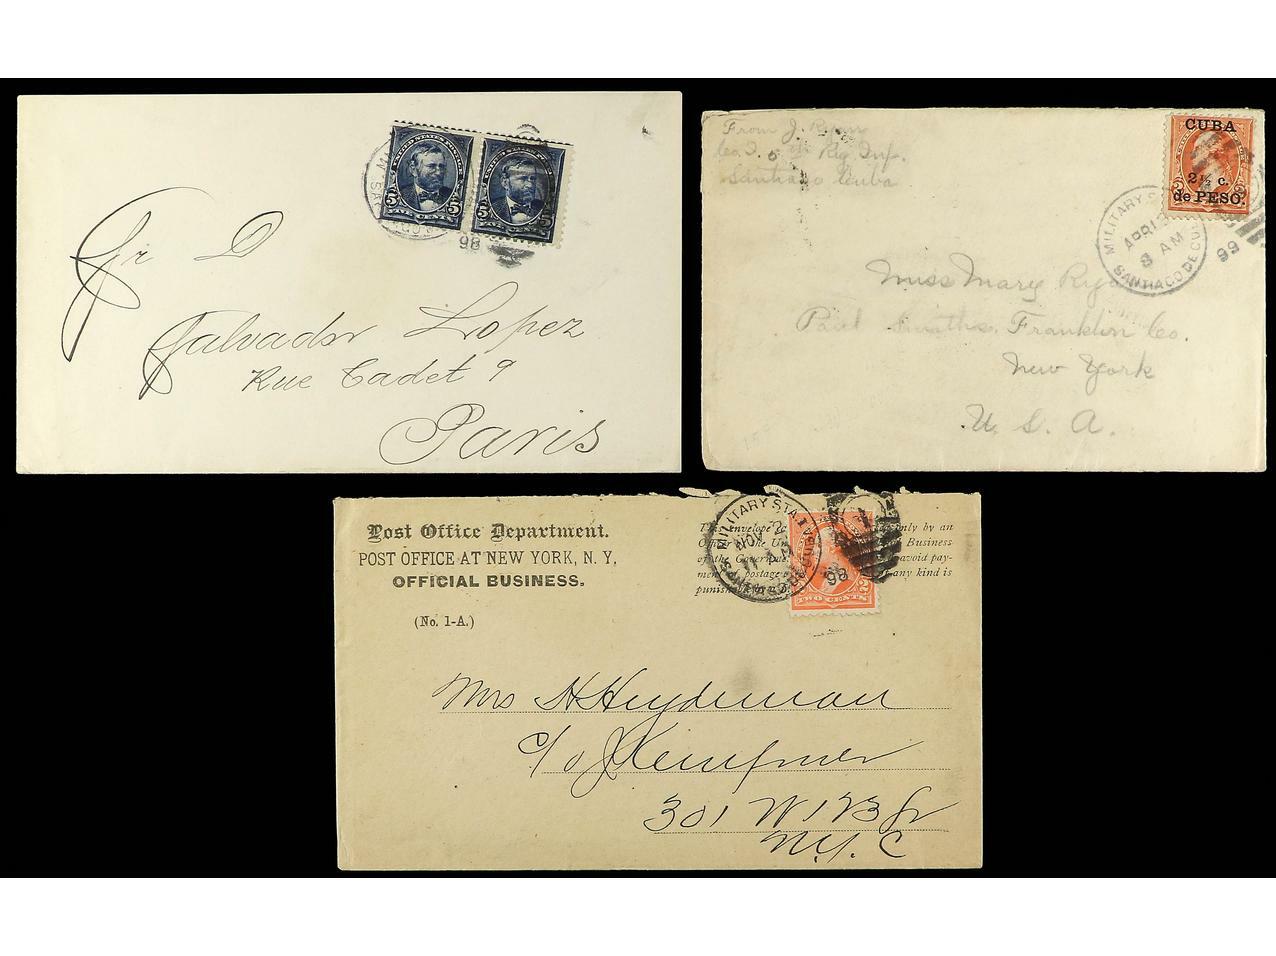 5 FIVE CENTS 5
5 5
98
Sr D
Salvador Lopez
Rue Cadet 9
Paris
From J. Ryan
Co. I. 5 th Reg Inf.
Santiago Cuba
CUBA
2½ c.
de PESO.
MILITARY
APR 13
8 AM
SANTIAGO DE CU
99
Miss Mary
Paul Smiths, Franklin Co.
New York
U. S. A.
Post Office Department.
POST OFFICE AT NEW YORK, N. Y.
OFFICIAL BUSINESS.
(No. 1-A.)
This envelope only by an
Offi the U Business
of the Governm avoid pay-
men postage any kind is
punish
MILITARY STA.
NOV 2
98
TWO CENT
Mrs H Heydeman
c/o J Kempner
301 W 123
N.Y. C